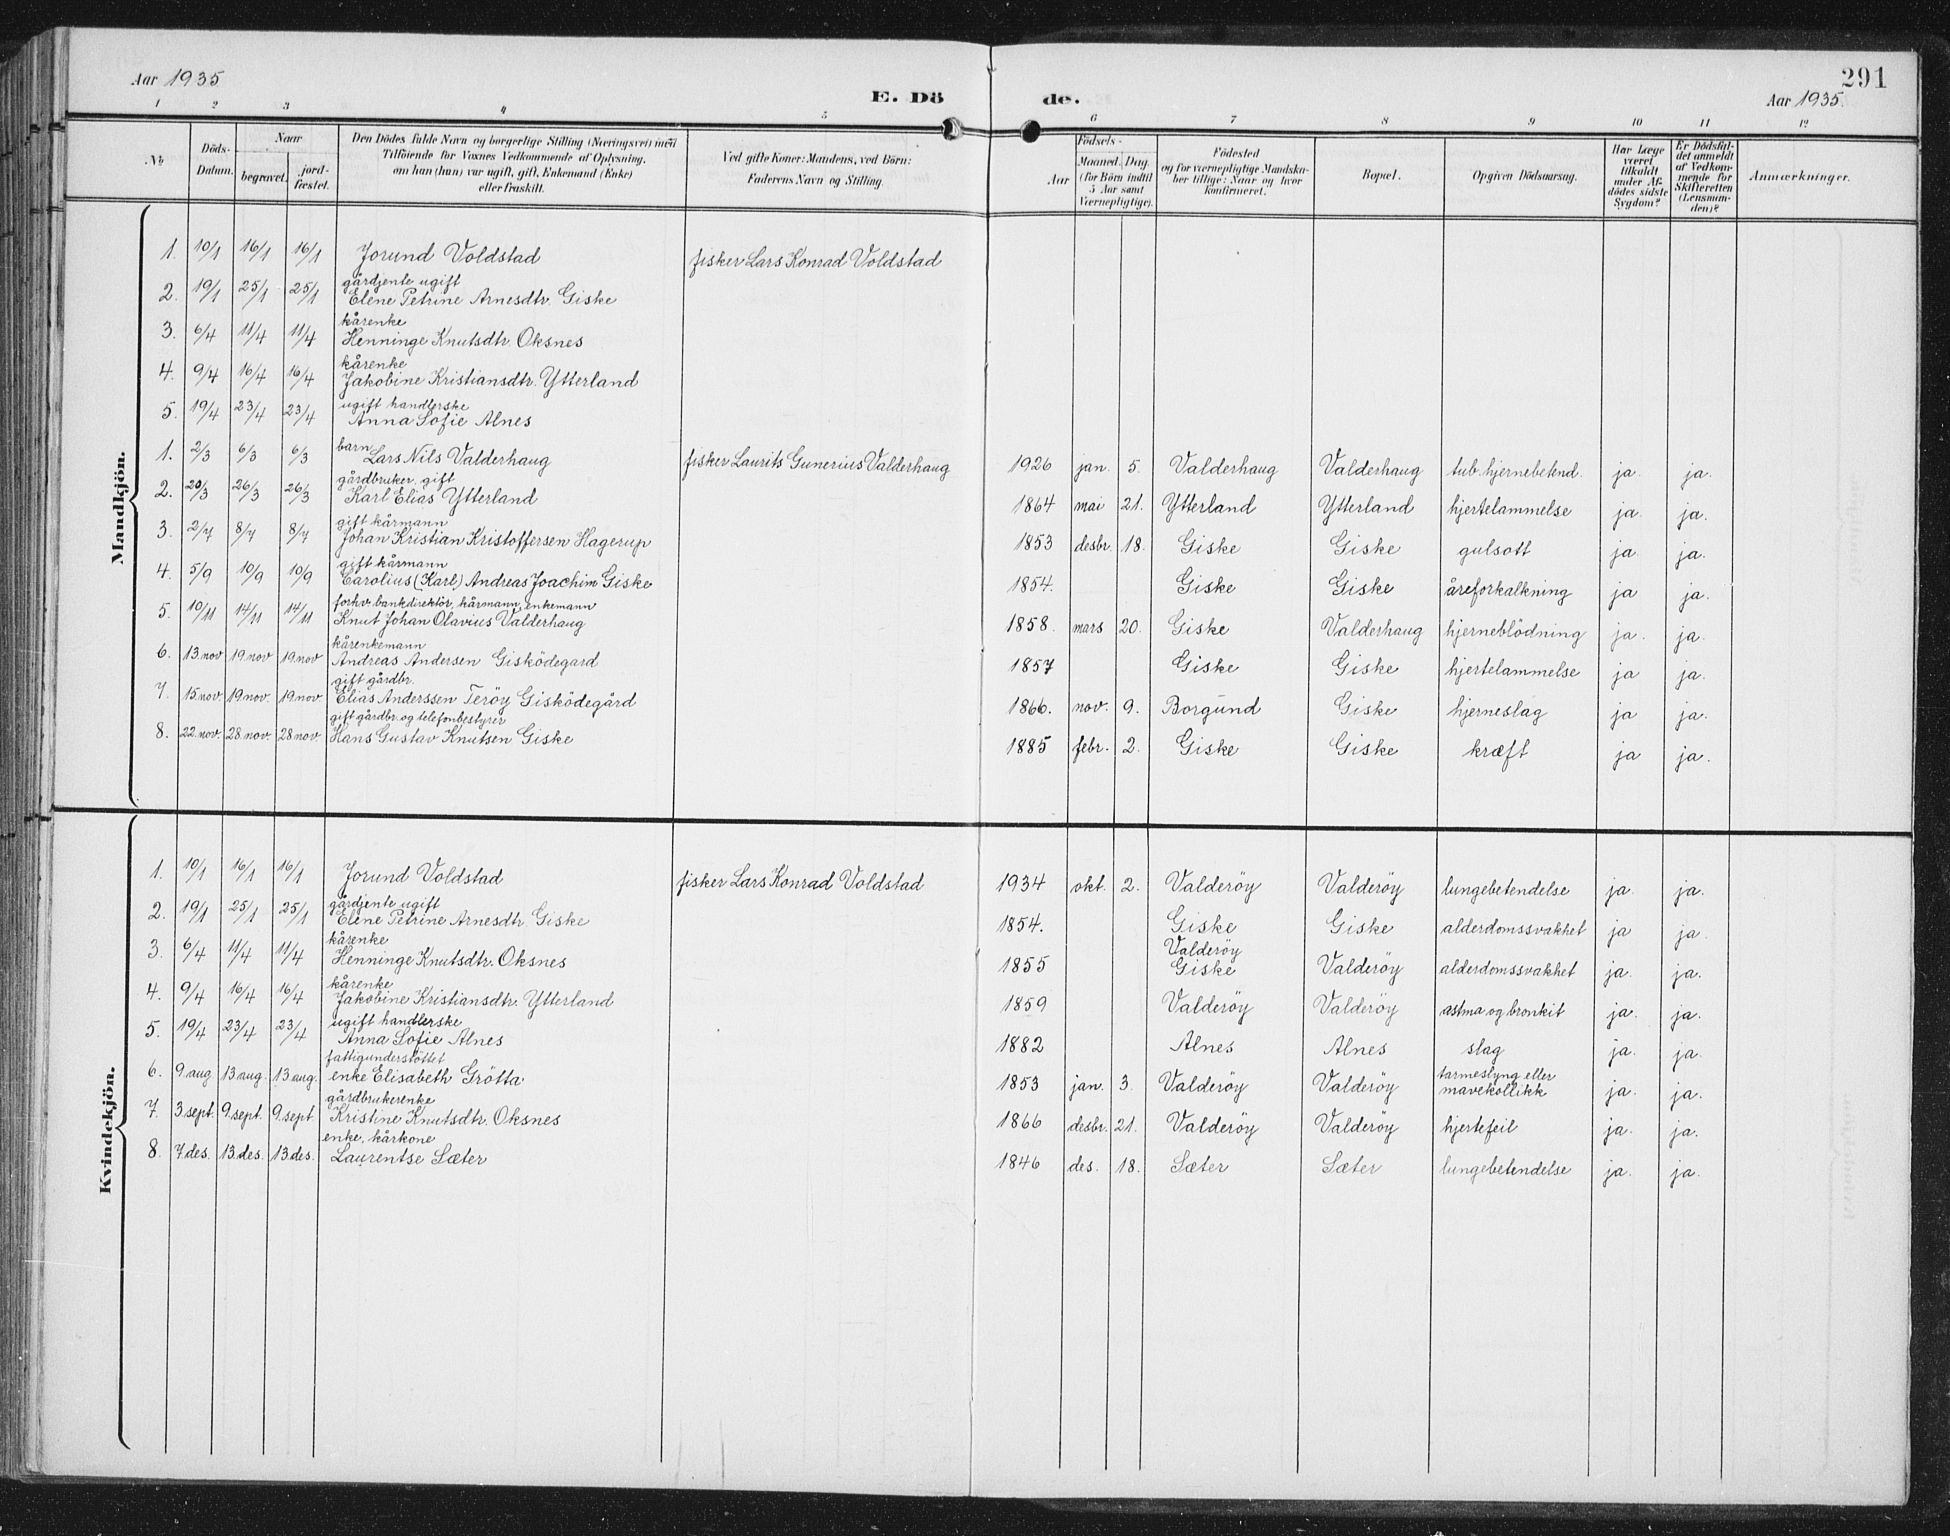 291
Aar 1935
E. Dö de.
Aar 1935.
1 2 3 4 5 6 7 8 9 10 11 12
No.
Döds-Datum.
Naar
begravet.
jord-fæstet.
Den Dödes fulde Navn og borgerlige Stilling (Næringsvei) med
Tilföiende for Voxnes Vedkommende af Oplysning,
om han (hun) var ugift, gift, Enkemand (Enke)
eller fraskilt.
Ved gifte Koner: Mandens, ved Börn:
Faderens Navn og Stilling.
Födsels-
Aar
Maaned. Dag.
(for Börn indtil
5 Aar samt
Værnepligtige).
Födested
og for værnepligtige Mandska-
ber tillige: Naar og hvor
konfirmeret.
Bopæl.
Opgiven Dödsaarsag.
Har Læge
været
tilkaldt
under Af-
dödes sidste
Sygdom?
Er Dödsfal-
det anmeldt
af Vedkom-
mende for
Skifteretten
(Lensman-
den)?
Anmærkninger.
Mandkjön.
1. 10/1 16/1 16/1 Jorund Voldstad fisker Lars Konrad Voldstad
gårdjente ugift
2. 19/1 25/1 25/1 Elene Petrine Arnesdtr. Giske
kårenke
3. 6/4 11/4 11/4 Henninge Knutsdtr. Oksnes
kårenke
4. 9/4 16/4 16/4 Jakobine Kristiansdtr. Ytterland
ugift handlerske
5. 19/4 23/4 23/4 Anna Sofie Alnes
barn
1. 2/3 6/3 6/3 Lars Nils Valderhaug fisker Laurits Gunerius Valderhaug 1926 jan. 5. Valderhaug Valderhaug tub. hjernebetend. ja. ja.
gårdbruker, gift
2. 20/3 26/3 26/3 Karl Elias Ytterland 1864 mai 21. Ytterland Ytterland hjertelammelse ja. ja.
gift kårmann
3. 2/7 8/7 8/7 Johan Kristian Kristoffersen Hagerup 1853 desbr. 18. Giske Giske gulsott ja ja.
gift kårmann
4. 5/9 10/9 10/9 Carolius (Karl) Andreas Joachim Giske 1854. Giske Giske åreforkalkning ja ja.
forhv. bankdirektör, kårmann, enkemann
5. 10/11 14/11 14/11 Knut Johan Olavius Valderhaug 1858. mars 20. Giske Valderhaug hjerneblödning ja. ja.
kårenkemann
6. 13 nov 19. nov 19. nov Andreas Andersen Gisködegard 1857 Giske Giske hjertelammelse ja ja.
gift gårdbr.
7. 15. nov. 19. nov. 19. nov. Elias Anderssen Teröy Gisködegård 1866. nov. 9. Borgund Giske hjerneslag ja ja.
gift gårdbr. og telefonbestyrer
8. 22. nov. 28. nov. 28 nov. Hans Gustav Knutsen Giske 1885 febr. 2. Giske Giske kræft ja ja.
Kvindekjön.
1. 10/1 16/1 16/1 Jorund Voldstad fisker Lars Konrad Voldstad 1934 okt. 2. Valderöy Valderöy lungebetendelse ja. ja.
gårdjente ugift
2. 19/1 25/1 25/1 Elene Petrine Arnesdtr. Giske 1854. Giske Giske alderdomssvakhet ja ja.
kårenke Valderöy
3. 6/4 11/4 11/4 Henninge Knutsdtr. Oksnes 1855 Giske Valderöy alderdomssvakhet ja. ja.
kårenke
4. 9/4 16/4 16/4 Jakobine Kristiansdtr. Ytterland 1859 Valderöy Valderöy astma og bronkit ja. ja.
ugift handlerske
5. 19/4 23/4 23/4 Anna Sofie Alnes 1882 Alnes Alnes slag ja. ja.
fattigunderstöttet tarmeslyng eller
6. 9 aug 13. aug. 13 aug. enke Elisabeth Grötta 1853 jan. 3. Valderöy Valderöy mavekollikk ja. ja.
gårdbrukerenke
7. 3 sept. 9. sept. 9. sept. Kristine Knutsdtr. Oksnes 1866 desbr. 21. Valderöy Valderöy hjertefeil ja. ja.
enke, kårkone
8. 7. des. 13. des. 13. des. Laurentse Sæter 1846 des. 18. Sæter Sæter lungebetendelse ja. ja.